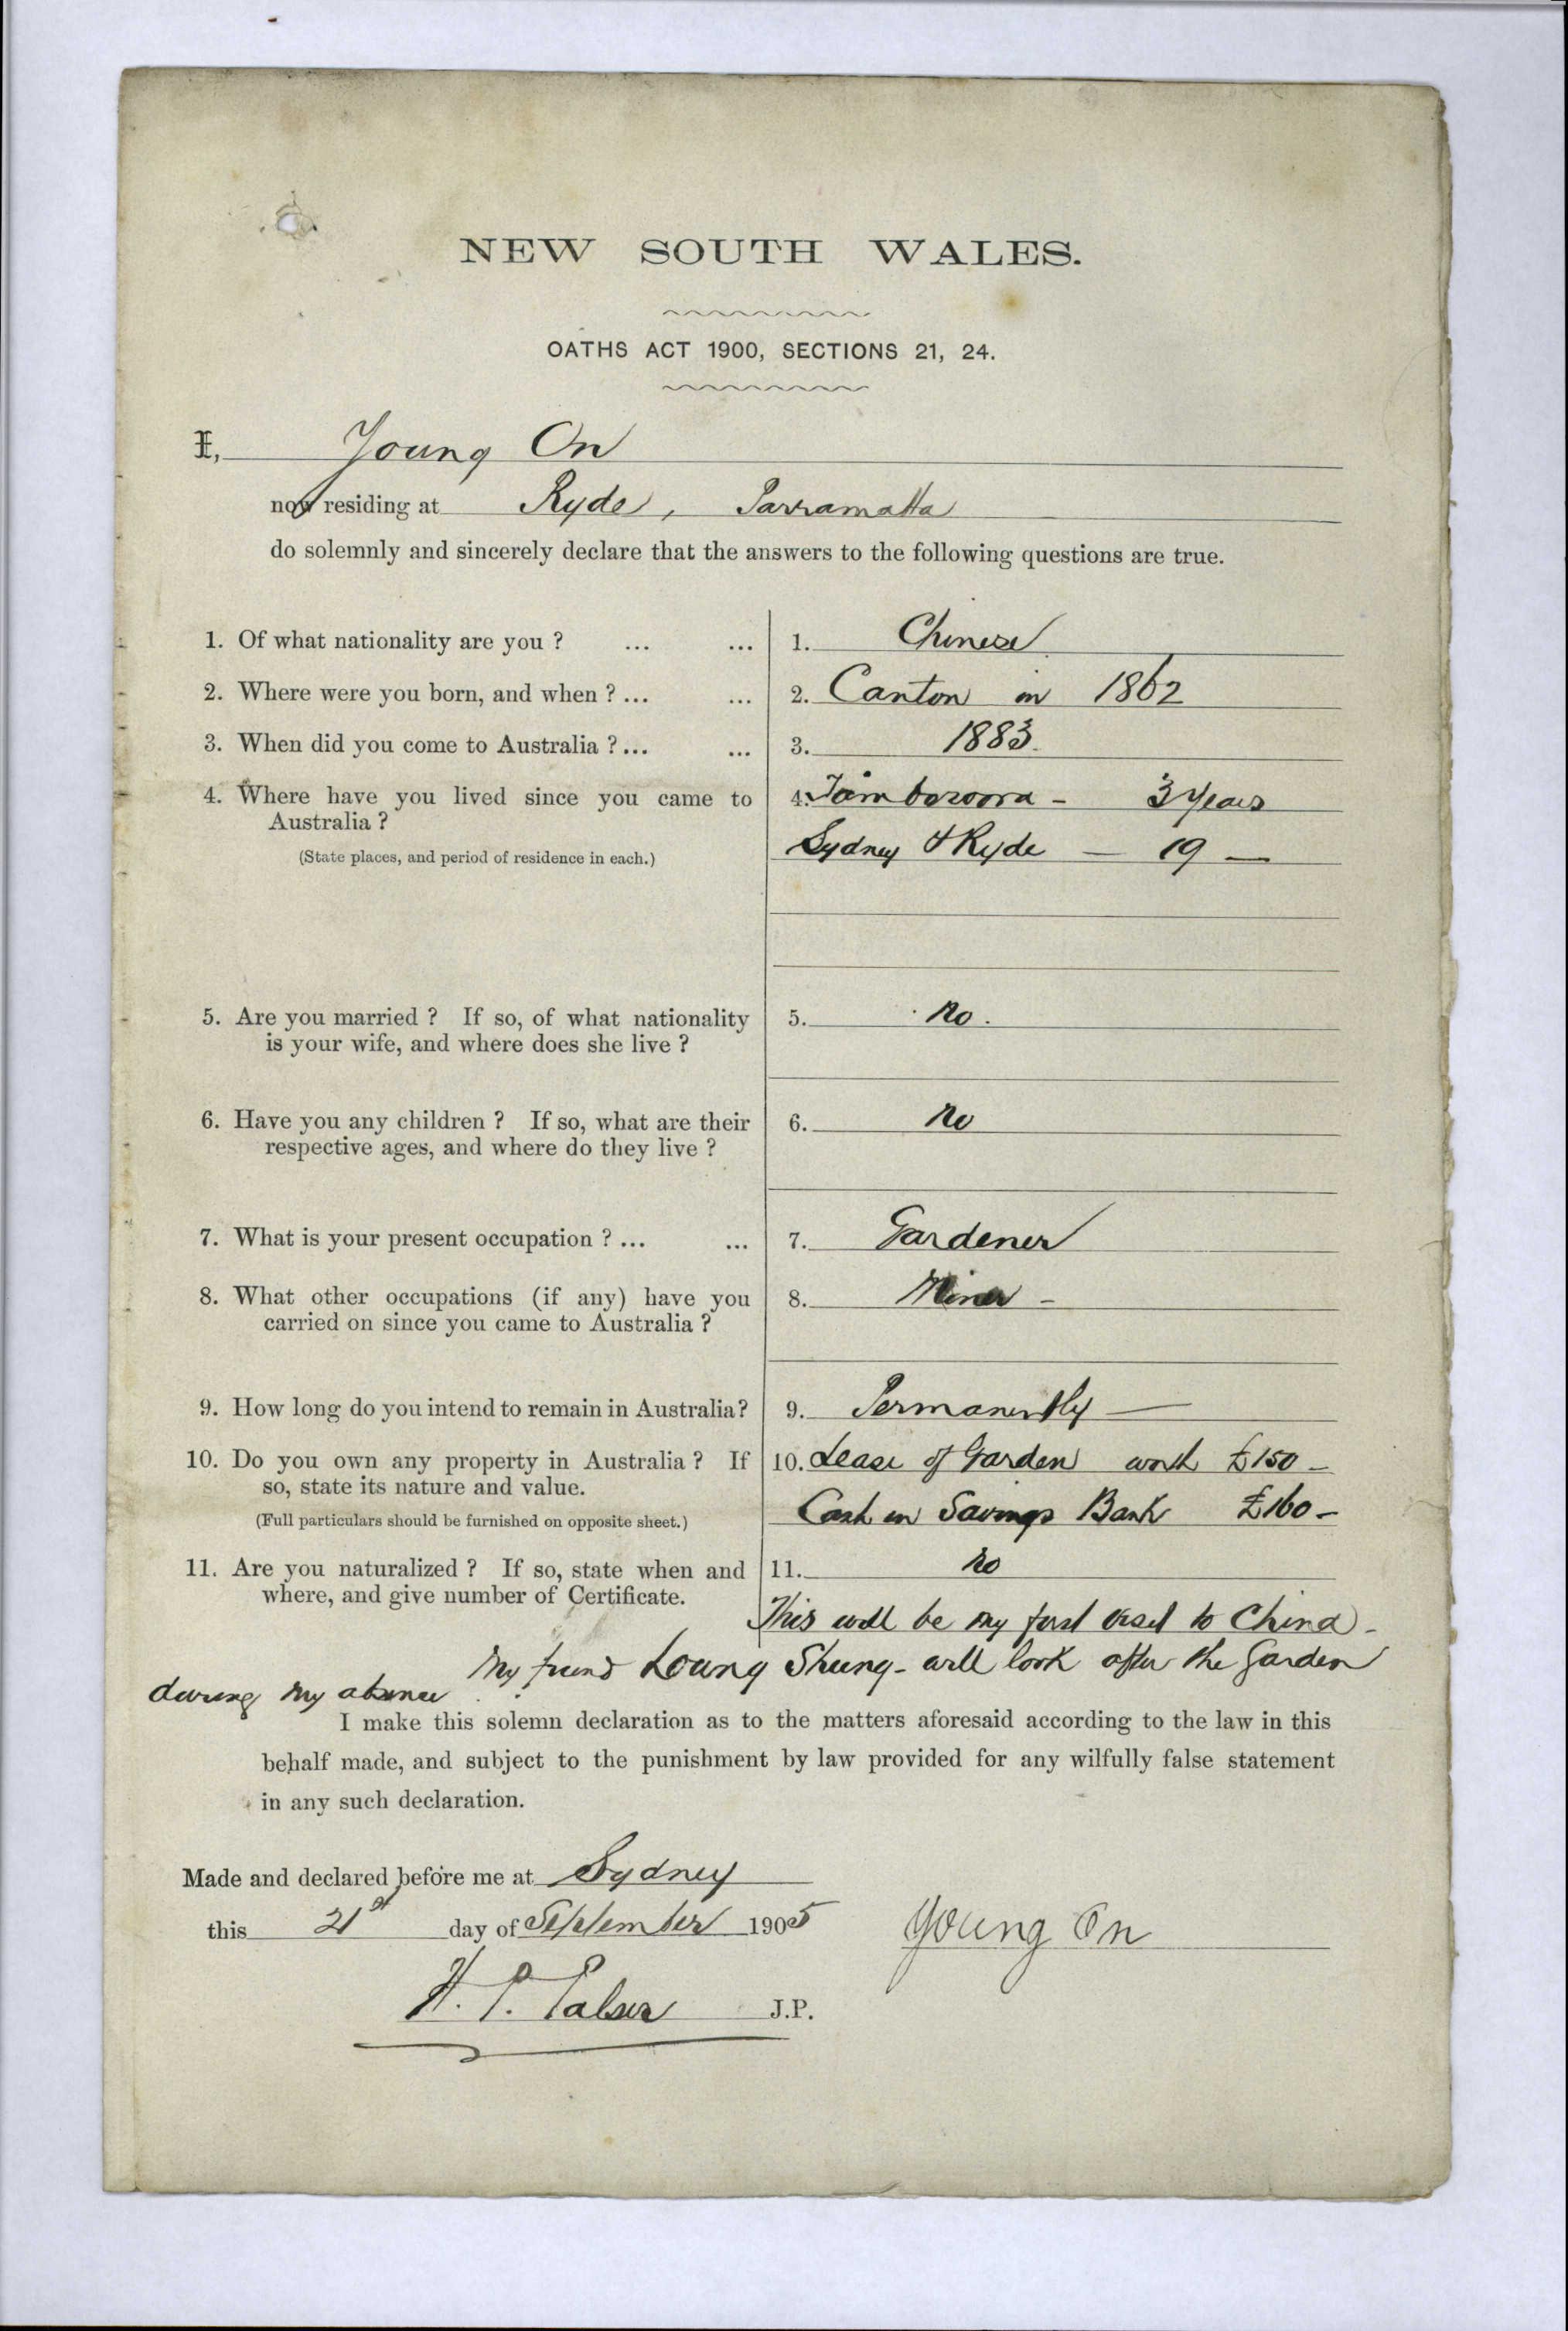 NEW SOUTH WALES.
OATHS ACT 1900, SECTIONS 21, 24.
I, Young On
now residing at Ryde, Parramatta
do solemnly and sincerely declare that the answers to the following questions are true.
1. Of what nationality are you ? ... ... 1. Chinese
2. Where were you born, and when ? ... ... 2. Canton in 1862
3. When did you come to Australia ? ... ... 3. 1883.
4. Where have you lived since you came to 4. Tambaroora - 3 years
Australia ?
(State places, and period of residence in each.) Sydney & Ryde — 19 —
5. Are you married ? If so, of what nationality 5. No.
is your wife, and where does she live ?
6. Have you any children ? If so, what are their 6. No
respective ages, and where do they live ?
7. What is your present occupation ? ... ... 7. Gardener
8. What other occupations (if any) have you 8. Miner -
carried on since you came to Australia ?
9. How long do you intend to remain in Australia? 9. Permanently —
10. Do you own any property in Australia ? If 10. Lease of Garden worth £150 -
so, state its nature and value.
(Full particulars should be furnished on opposite sheet.) Cash in Savings Bank £160 -
11. Are you naturalized ? If so, state when and 11. No
where, and give number of Certificate.
This will be my first visit to China -
My friend Loung Sheung - will look after the garden
during my absence
I make this solemn declaration as to the matters aforesaid according to the law in this
behalf made, and subject to the punishment by law provided for any wilfully false statement
in any such declaration.
Made and declared before me at Sydney
this 21st day of September 1905 Young On
H. P. J.P.